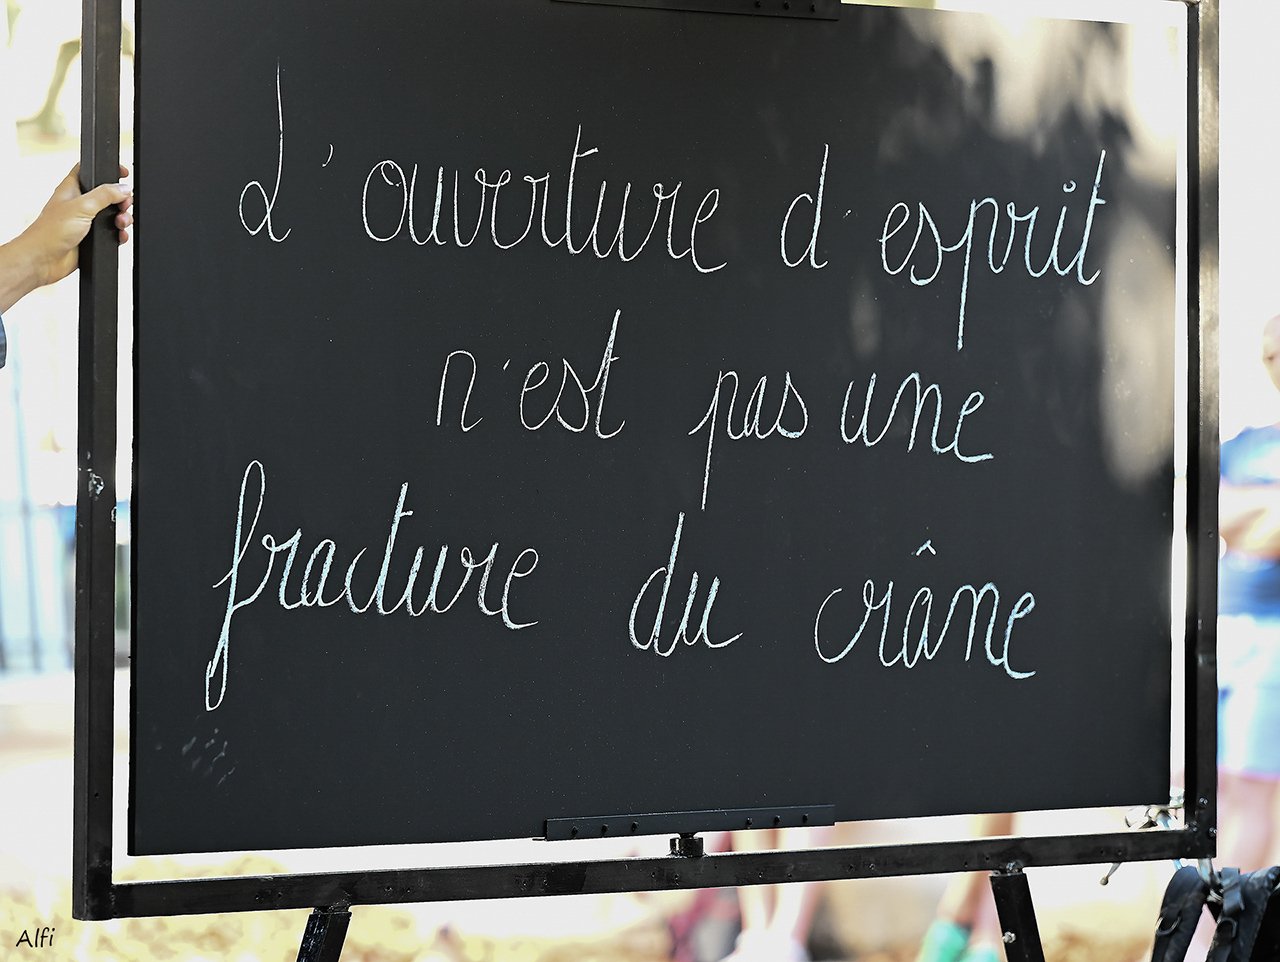 L'ouverture d'esprit
n'est pas une
fracture du crâne
Alfi